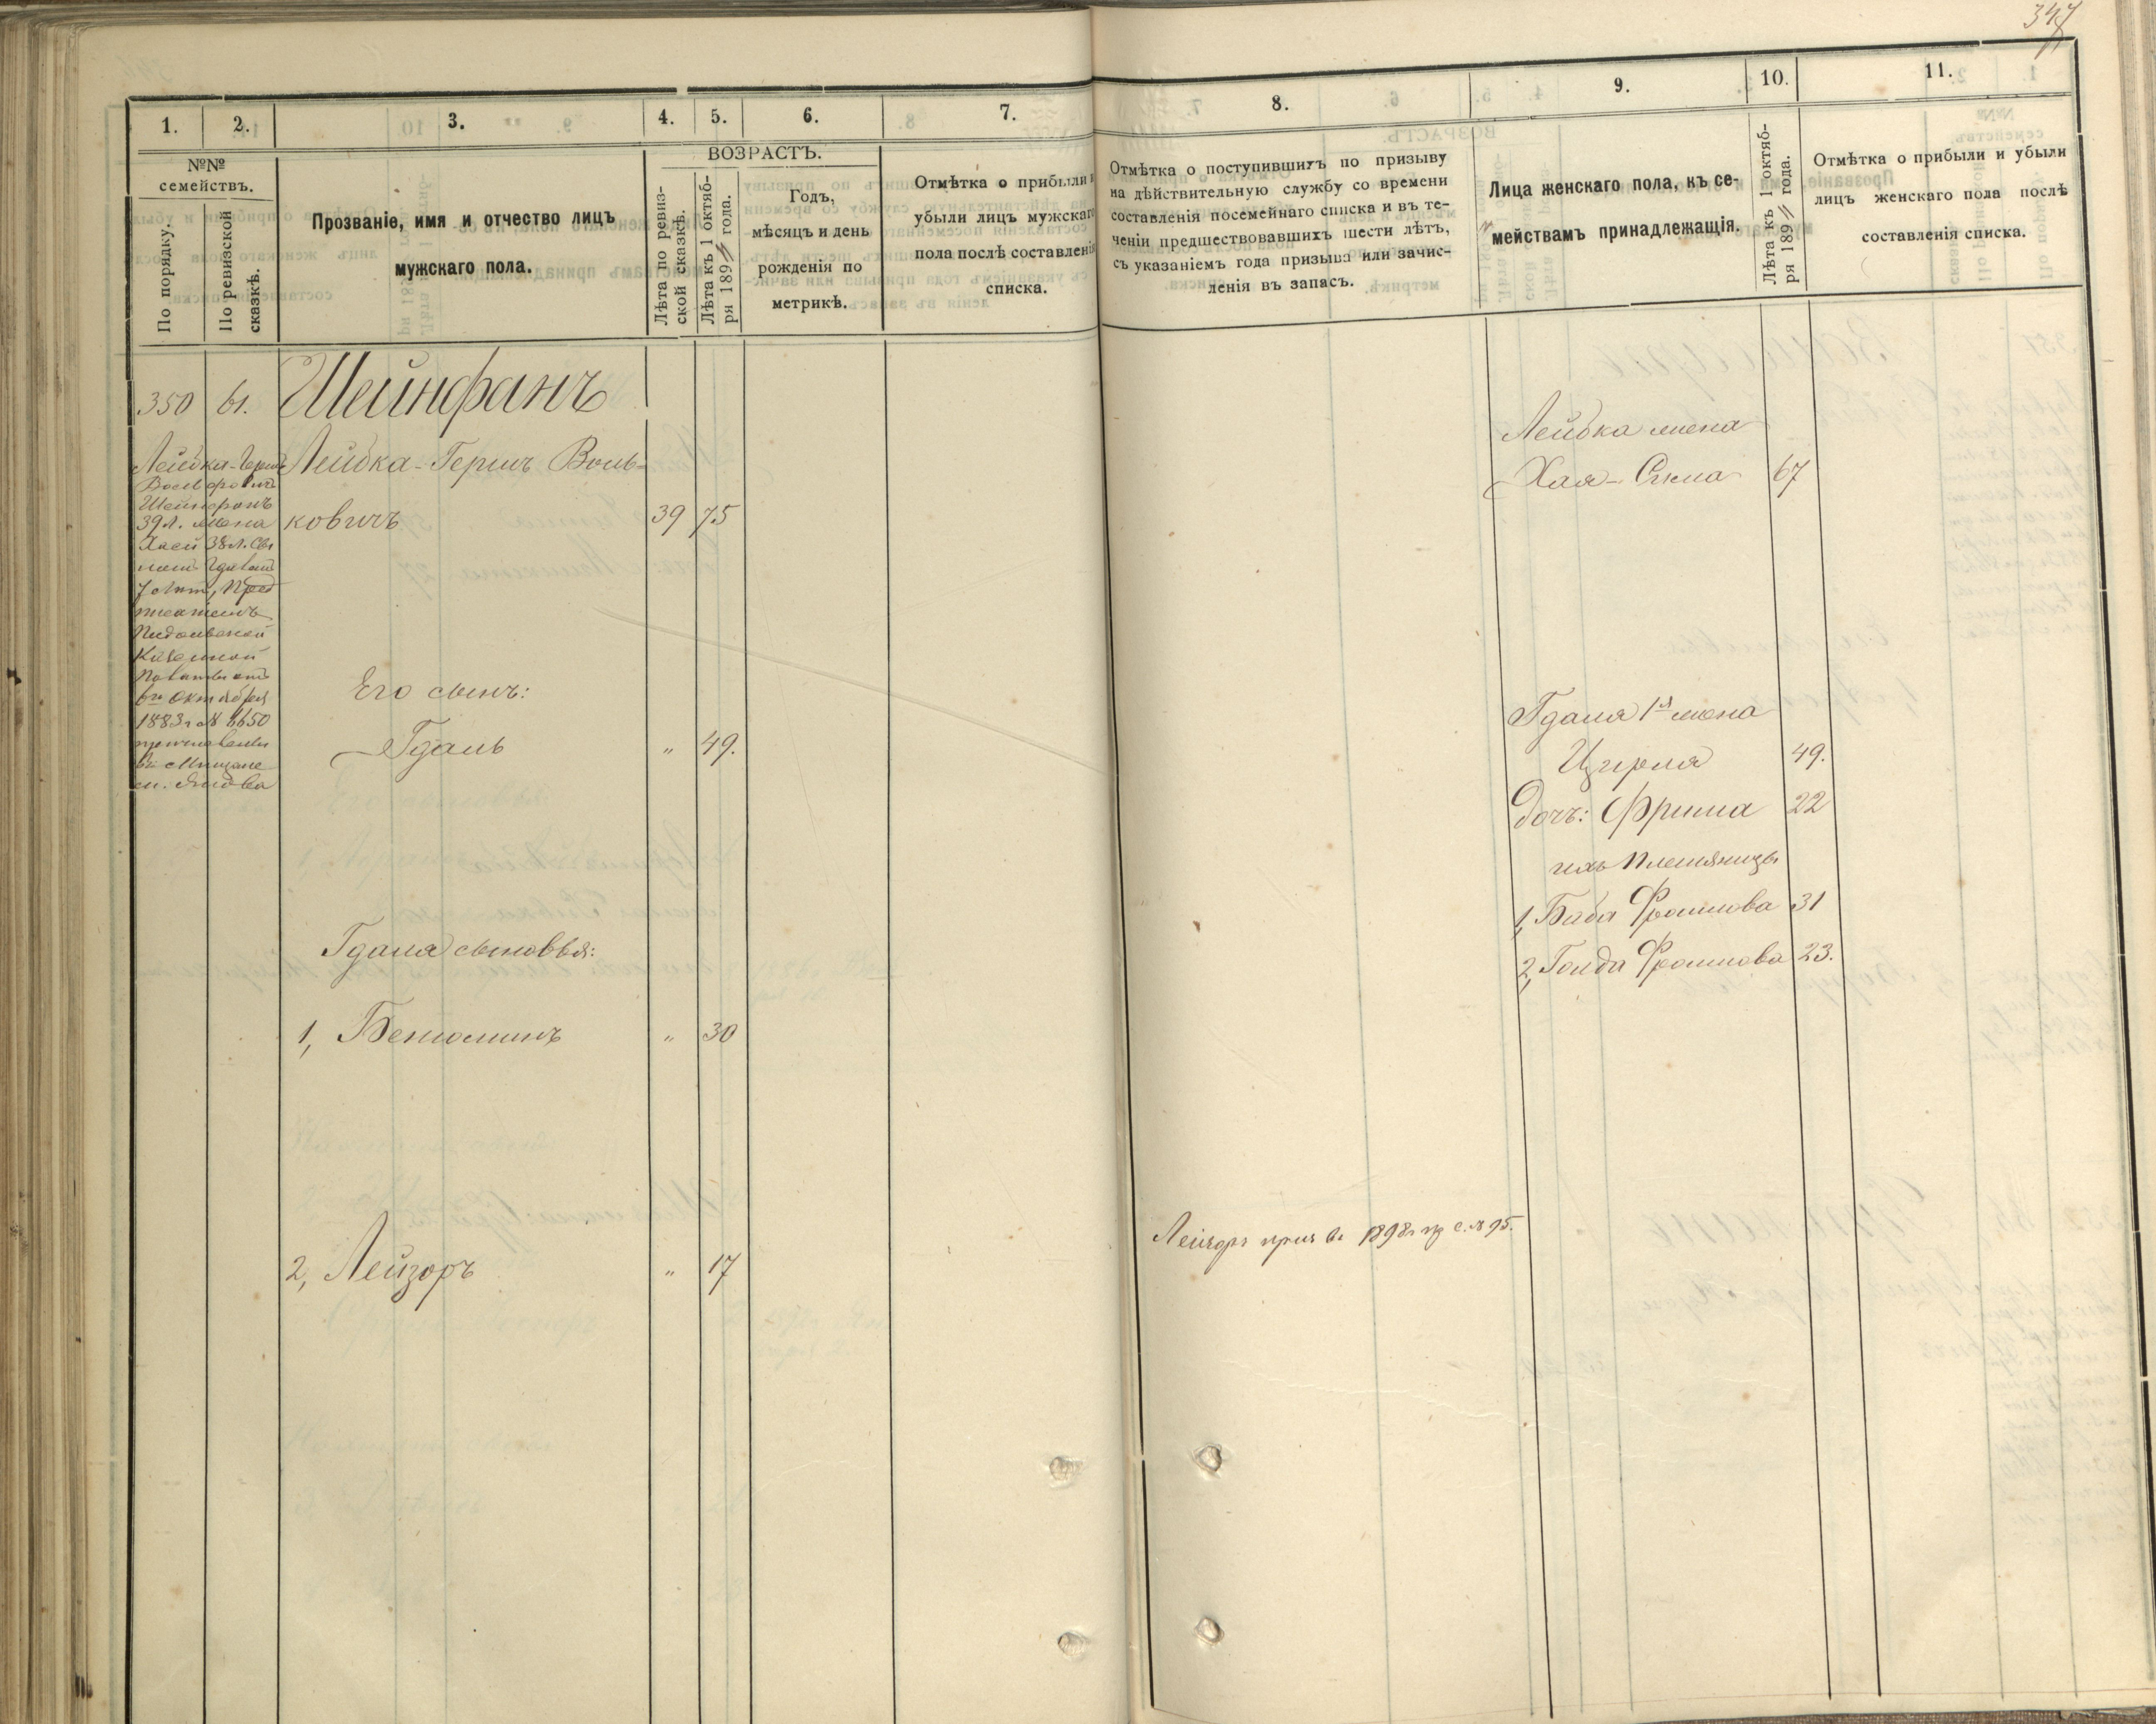 347
1.
2.
3.
4.
5.
6.
7.
№№
семействъ.
По порядку.
По ревизской
сказкѣ.
Прозваніе, имя и отчество лицъ
мужскаго пола.
ВОЗРАСТЪ.
Лѣта по ревиз-
ской сказкѣ.
Лѣта къ 1 октяб-
ря 189 года.
Годъ,
мѣсяцъ и день
рожденія по
метрикѣ.
Отмѣтка о прибыли и
убыли лицъ мужскаго
пола послѣ составленія
списка.
350
61.
Шейнфанъ
Лейбка-Герш
39 л. жена
Хася 38 л.
7 лѣт, Пред
писаніемъ
Подольской
Казенной
Палаты отъ
октября
1883 г № 6650
Лейбка-Гершъ Воль-
ковичъ
39
75
Его сынъ:
Гдаль
"
49.
Гдаля сыновья:
1, Бенюминъ
"
30
2, Лейзоръ
"
17
8.
9.
10.
11.
Отмѣтка о поступившихъ по призыву
на дѣйствительную службу со времени
составленія посемейнаго списка и въ те-
ченіи предшествовавшихъ шести лѣтъ,
съ указаніемъ года призыва или зачис-
ленія въ запасъ.
Лица женскаго пола, къ се-
мействамъ принадлежащія.
Лѣта къ 1 октяб-
ря 189 года.
Отмѣтка о прибыли и убыли
лицъ женскаго пола послѣ
составленія списка.
Лейбка жена
Хая-
67
Гдаля 1я жена
Цирля
49.
дочь: Фрима
22
ихъ Племяницы
1, Баба Фроимова
31
2, Голда Фроимова
23.
Лейзоръ 1898 г № 95.